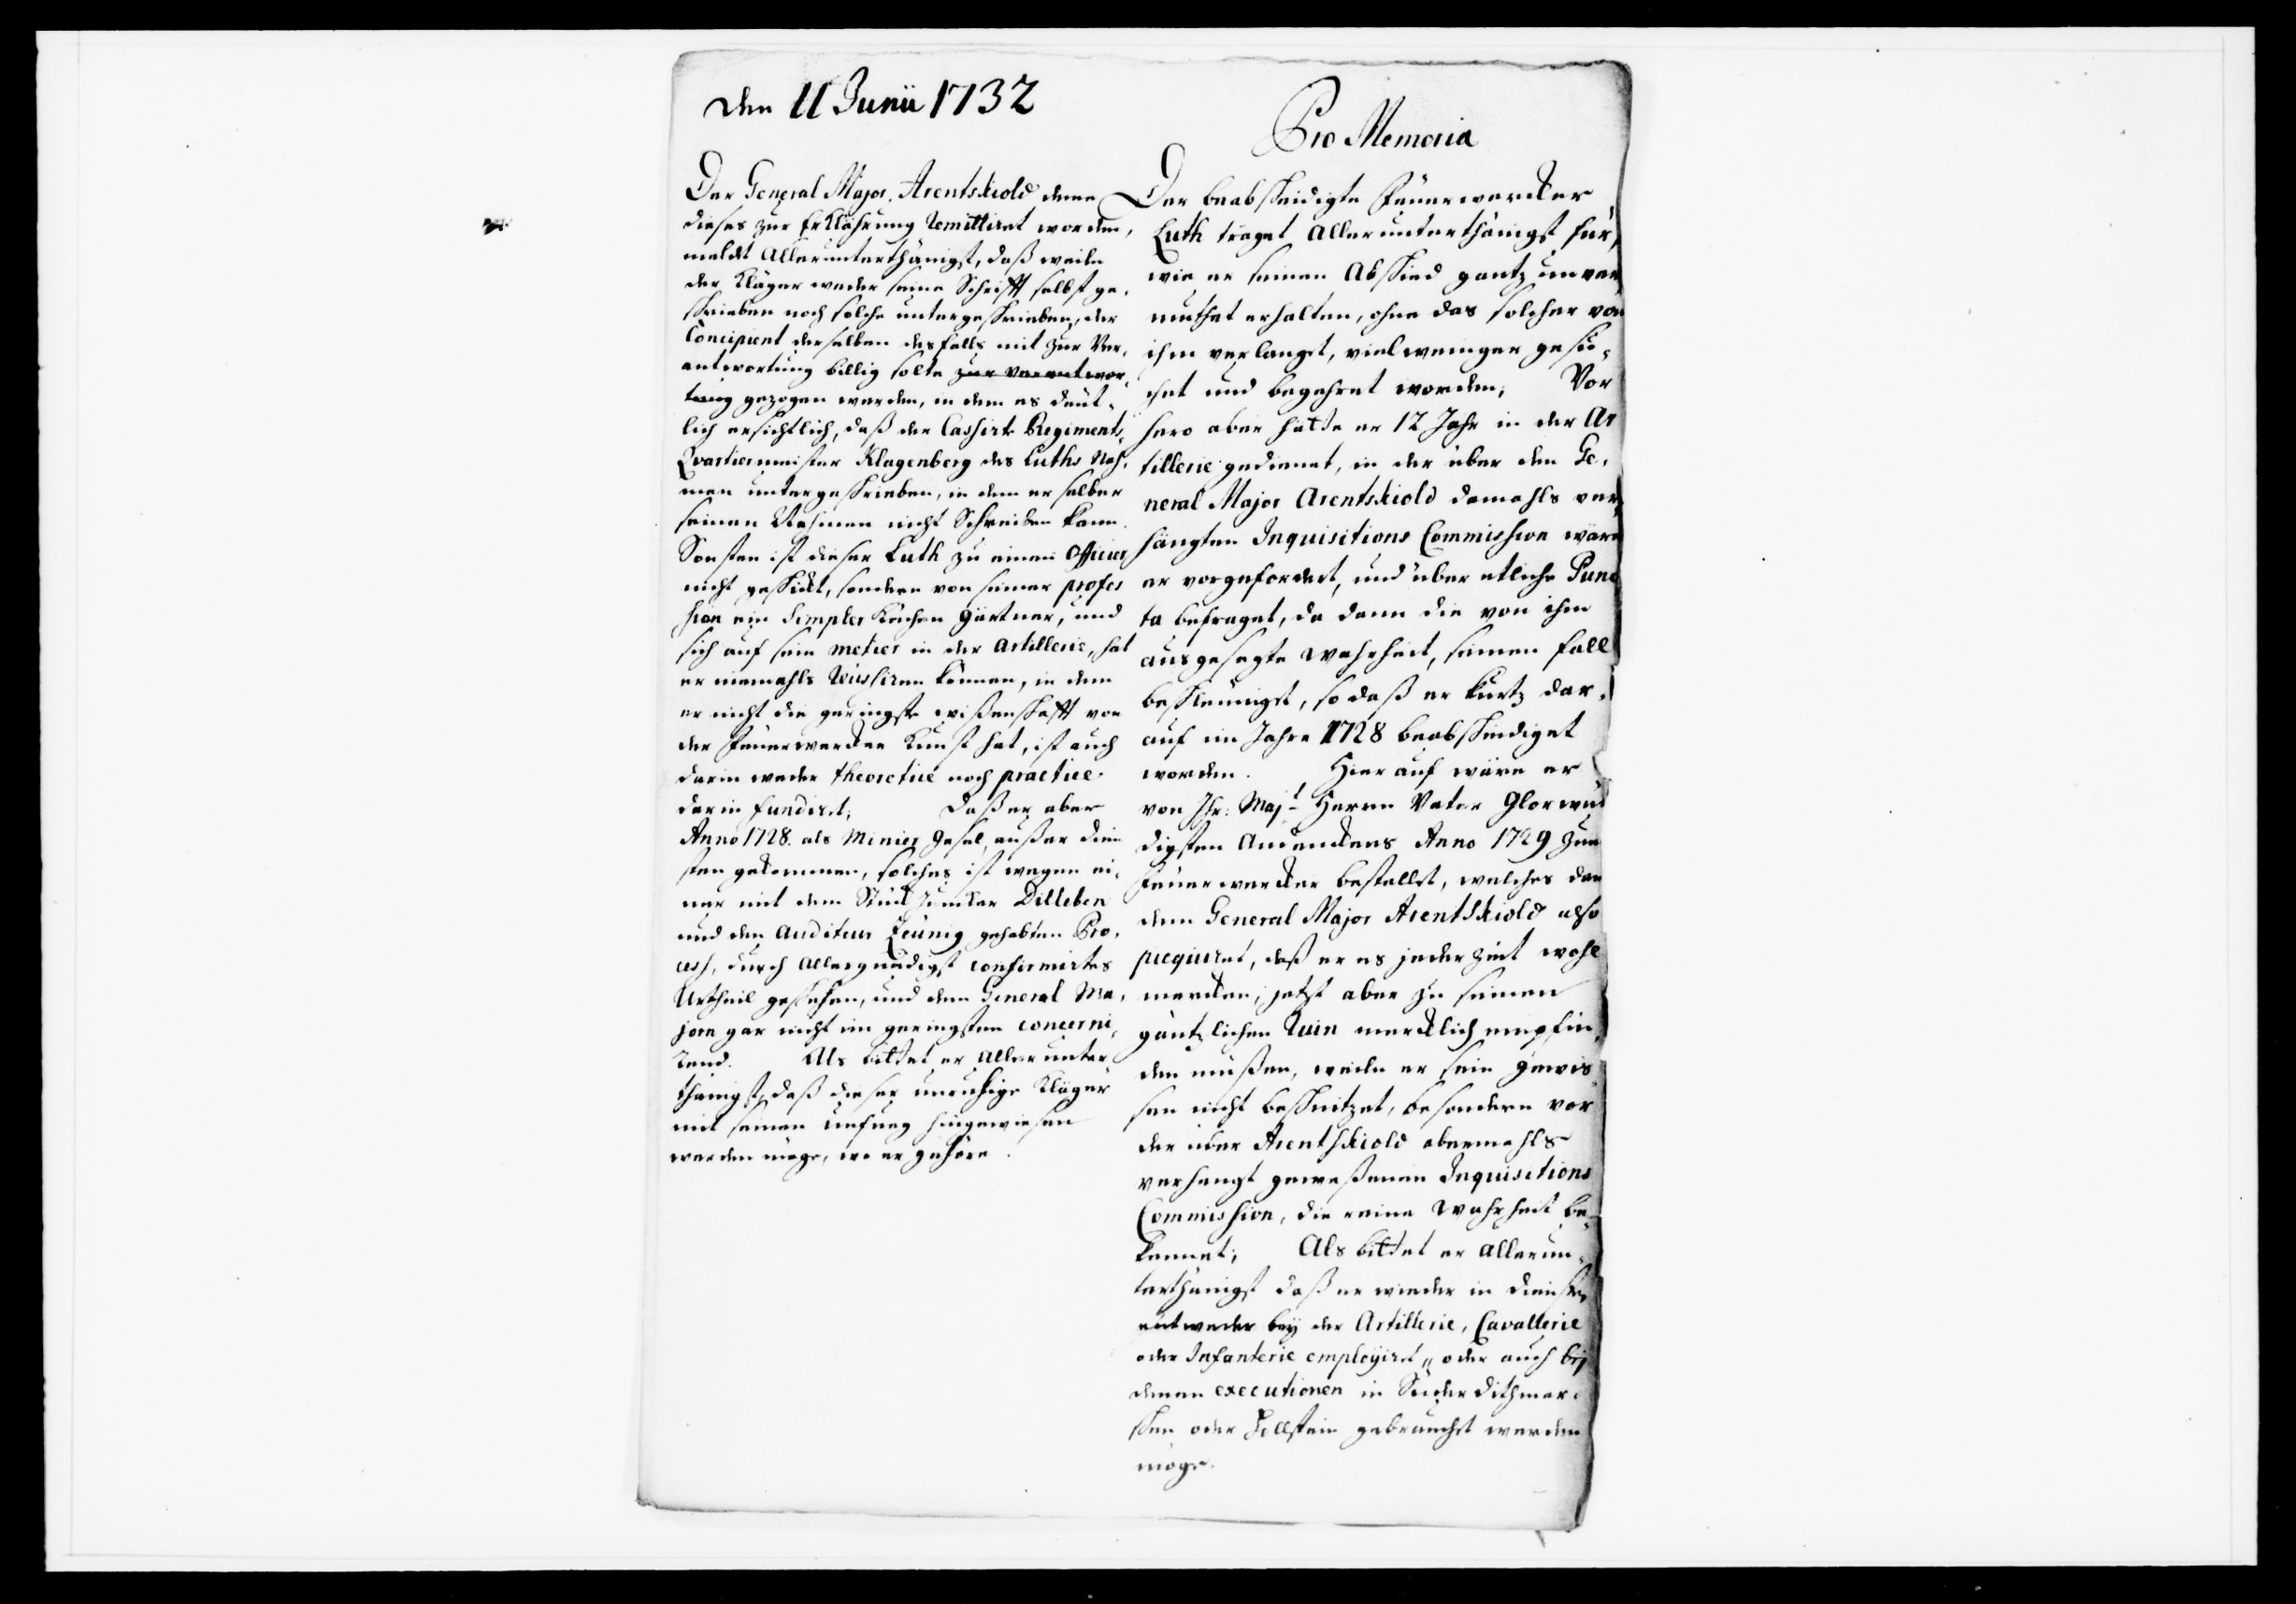 den 11 Junii 1732
Der General Major Arentskiold deme
dieses zur Erklährung remittiret worden,
meldt allerunterthänigst, daß weiln
der Kläger weder seine Schrifft selbst ge,
schrieben noch solche untergeschrieben, der
Concipient derselben desfalls mit zur Ver,
antwortung billig solte zur verantwor,
tung gezogen werden, in dem es deut,
lich ersichtlich, daß der Cassirte Regiments,
Qvartiermeister Klagenberg des Luths Nah,
men untergeschrieben, in dem er selber
seinen Nahmen nicht Schreiben kann.
Sonsten ist dieser Luth zu einen Officier
nicht geschickt, sondern von seiner profes
sion ein simpler Küchen gärtner, und
sich auf sein metier in der Artillerie, hat
er niemahls reussiren können, in dem
er nicht die geringste wißenschafft von
der Feuerwercker Kunst hat, ist auch
darin weder theoreticè noch practicè
darin fundiret; Daß er aber
Anno 1728. als Minier gesel, außer dien
sten gekommen, solches ist wegen ei,
ner mit dem Stück Juncker Dilleben
und den Auditeur Zeunig gehabten Pro,
cess, durch allergnädigst confirmirtes
Urtheil geschehen, und dem General Ma,
jorn gar nicht im geringsten concerni,
rend. Als bittet er allerunter
thänigst, daß dieser unruhige Kläger
mit seinen unfueg hingewiesen
werden möge, wo er gehöre.
Pro Memoria
Der beabscheidigte Feuerwercker
Luth träget allerunterthänigst für,
wie er seinen Abschied gantz unver
muthet erhalten, ohne das solcher von
ihm verlanget, vielweniger gesu,
chet und begehret worden; Vor
hero aber hätte er 12 Jahr in der Ar
tillerie gedienet, in der über den Ge,
neral Major Arentskiold damahls ver,
hängten Inquisitions Commission wäre
er vorgefordert, und über etliche Punc
ta befraget, da dann die von ihm
ausgesagte Wahrheit, seinen fall
beschleuniget, so daß er kurtz dar,
auf im Jahre 1728 beabscheidiget
worden. Hierauf wäre er
von Ihr: Majt Herrn Vater Glorwür
digsten Andenckens Anno 1729 zum
Feuerwercker bestellet, welches dan
dem General Major Arentskiold also
piequiret, daß er es jederzeit wohl
mercken, jetzt aber zu seinen
gäntzlichen Ruin mercklich empfin,
den müßen, weiln er sein gewis
sen nicht beschmitzet, besondern vor
der über Arentskiold abermahls
verhengt geweßenen Inquisitions
Commission, die reine Wahrheit be,
kennet; Als bittet er allerun,
terthänigst daß er wieder in diensten
entweder bey der Artillerie, Cavallerie
oder Infanterie employiret, oder auch bey
denen executionen in Süder Dithmar,
schen oder Hollstein gebrauchet werden
möge.